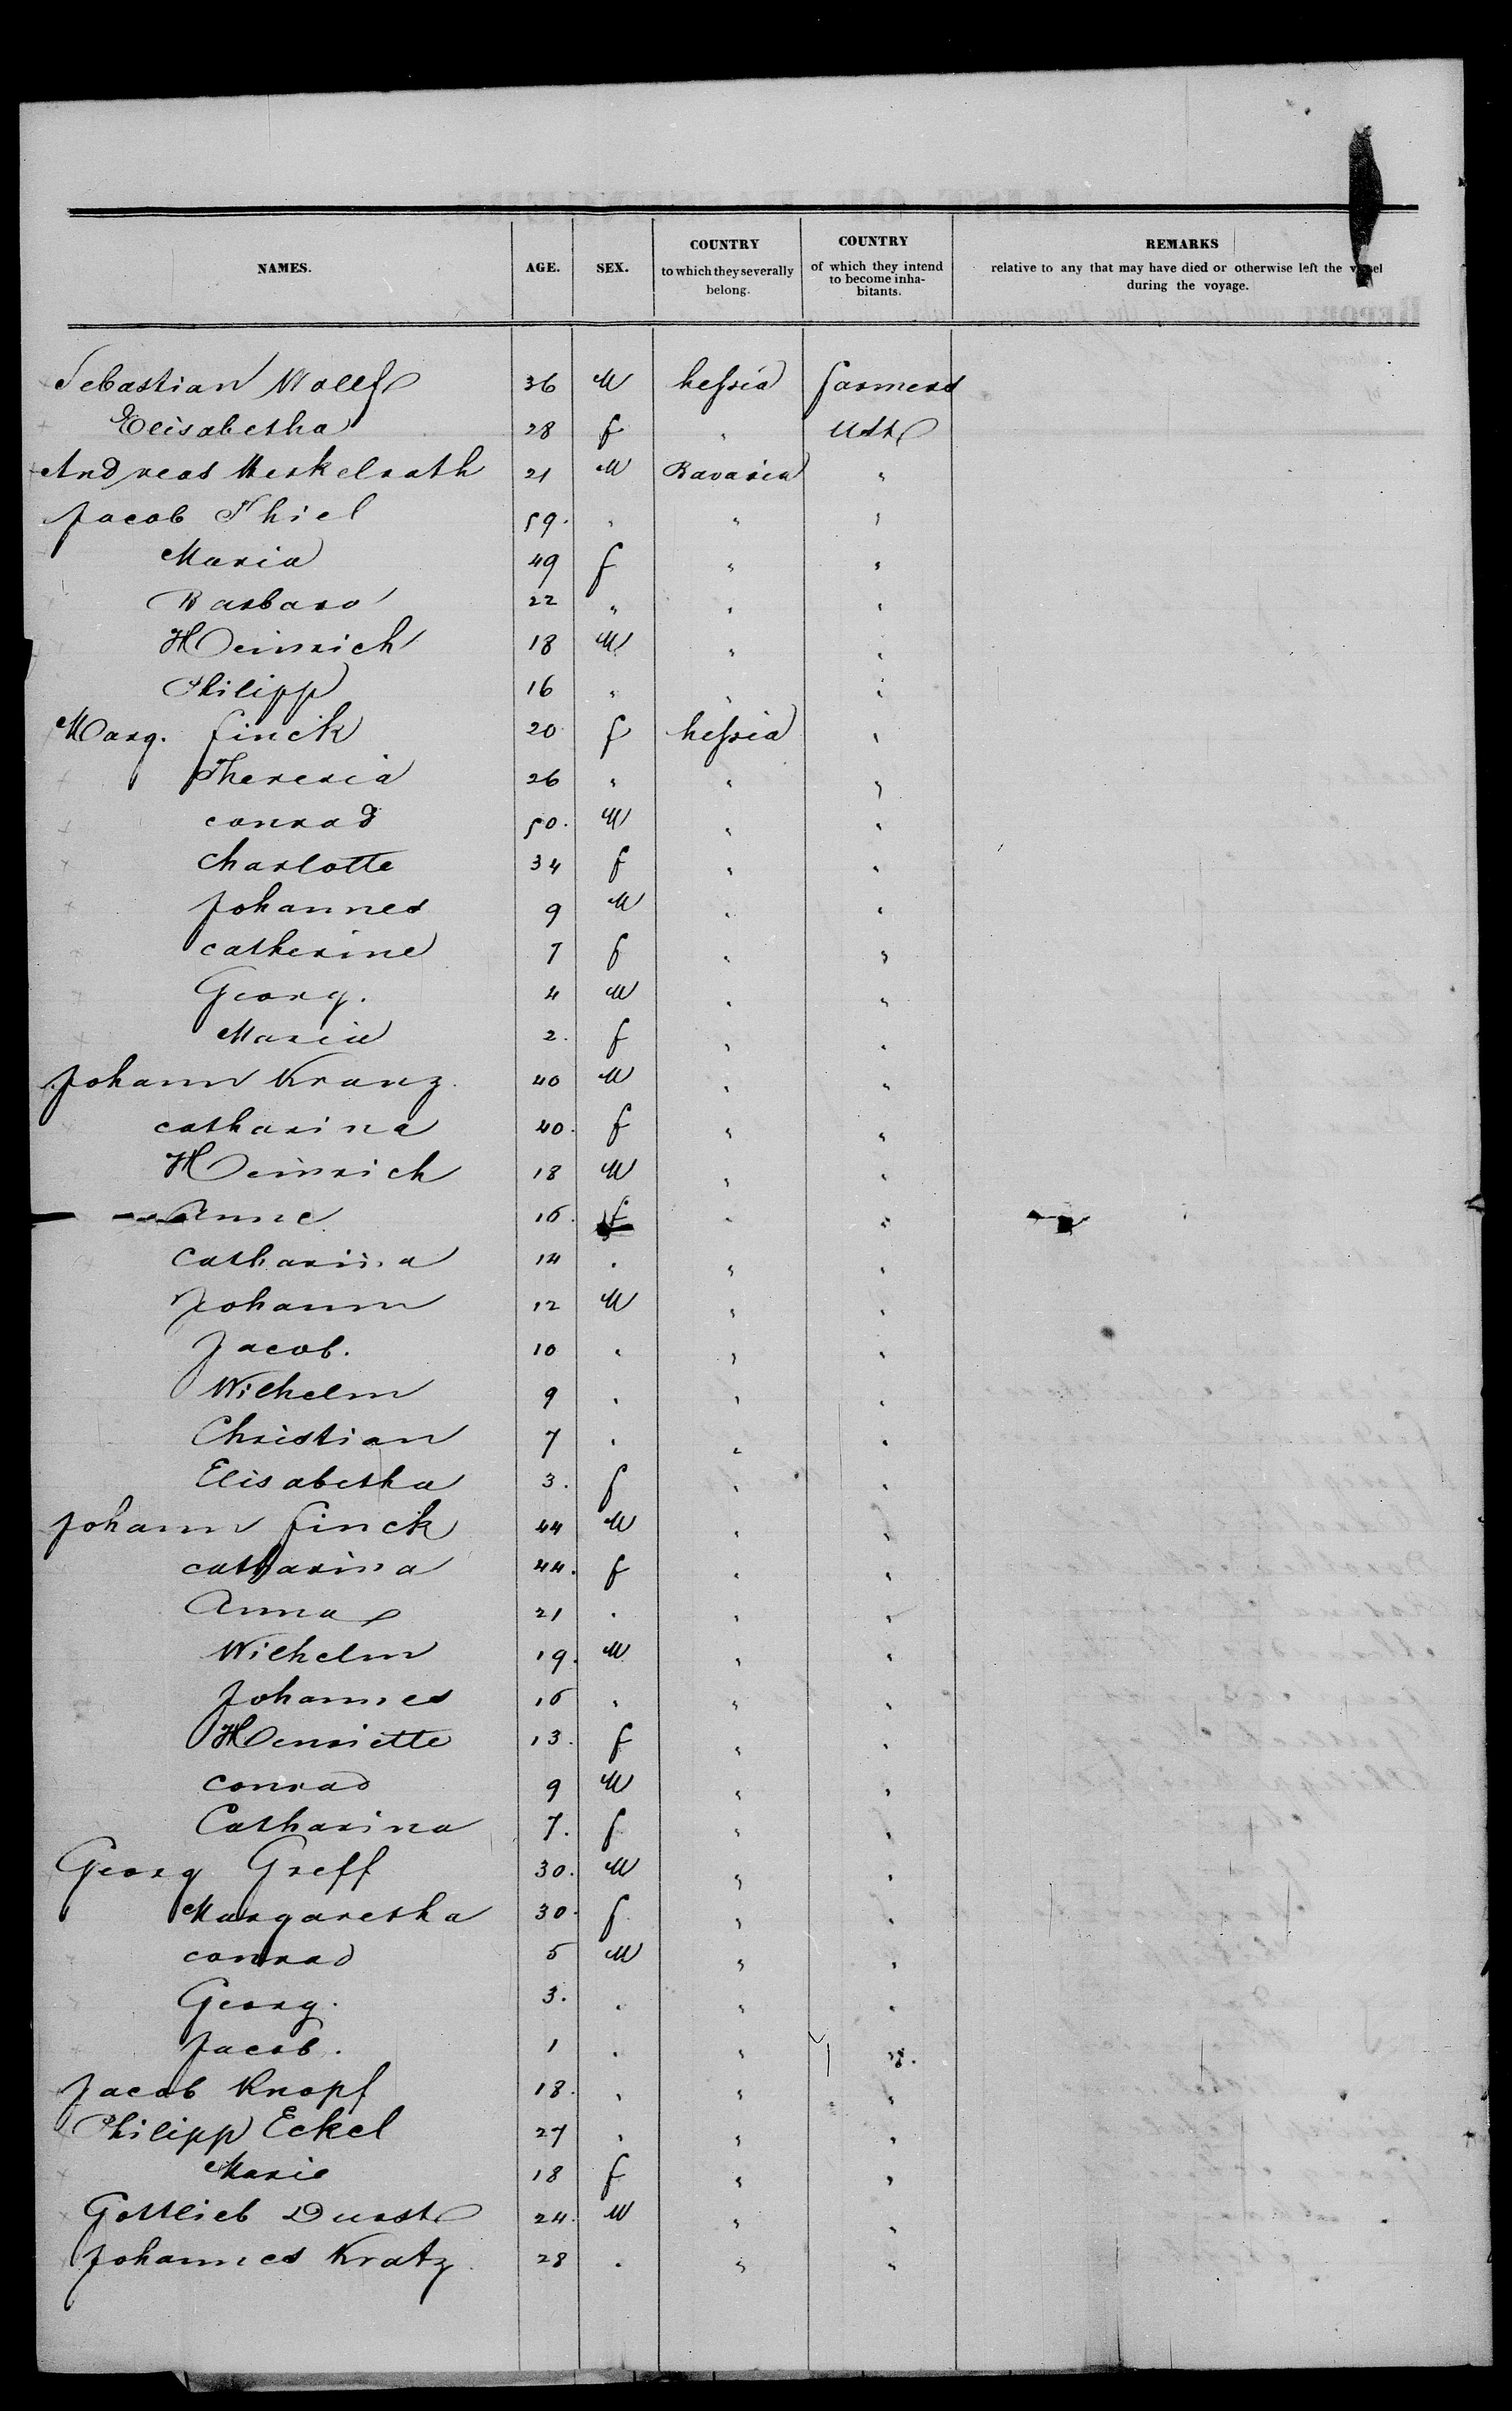 NAMES. AGE. SEX. COUNTRY to which they severally belong. COUNTRY of which they intend to become inhabitants. REMARKS relative to any that may have died or otherwise left the vessel during the voyage.
Sebastian Wolff 36 M hessia farmers
Elisabetha 28 f " USt
Andreas Merkelrath 21 M Bavaria "
Jacob Thiel 59. " " "
Maria 49 f " "
Barbara 22 " " "
Heinrich 18 M " "
Philipp 16 " " "
Marg. finck 20 f hessia "
Theresia 26 " " "
conrad 50. M " "
charlotte 34 f " "
Johannes 9 M " "
catherine 7 f " "
Georg. 4 M " "
Maria 2. f " "
Johann Kranz 40 M " "
catharina 40. f " "
Heinrich 18 M " "
Anne 16. f " "
Catharina 14 " " "
Johann 12 M " "
Jacob. 10 " " "
Wilhelm 9 " " "
Christian 7 " " "
Elisabetha 3. f " "
Johann finck 44 M " "
catharina 44. f " "
Anna 21 " " "
Wilhelm 19. M " "
Johannes 16 " " "
Henriette 13. f " "
conrad 9 M " "
Catharina 7. f " "
Georg Greff 30. M " "
Margaretha 30. f " "
conrad 5 M " "
Georg. 3. " " "
Jacob. 1 " " "
Jacob Knopf 18. " " "
Philipp Eckel 27 " " "
Marie 18 f " "
Gottlieb Durst 24. M " "
Johannes Kratz 28 " " "